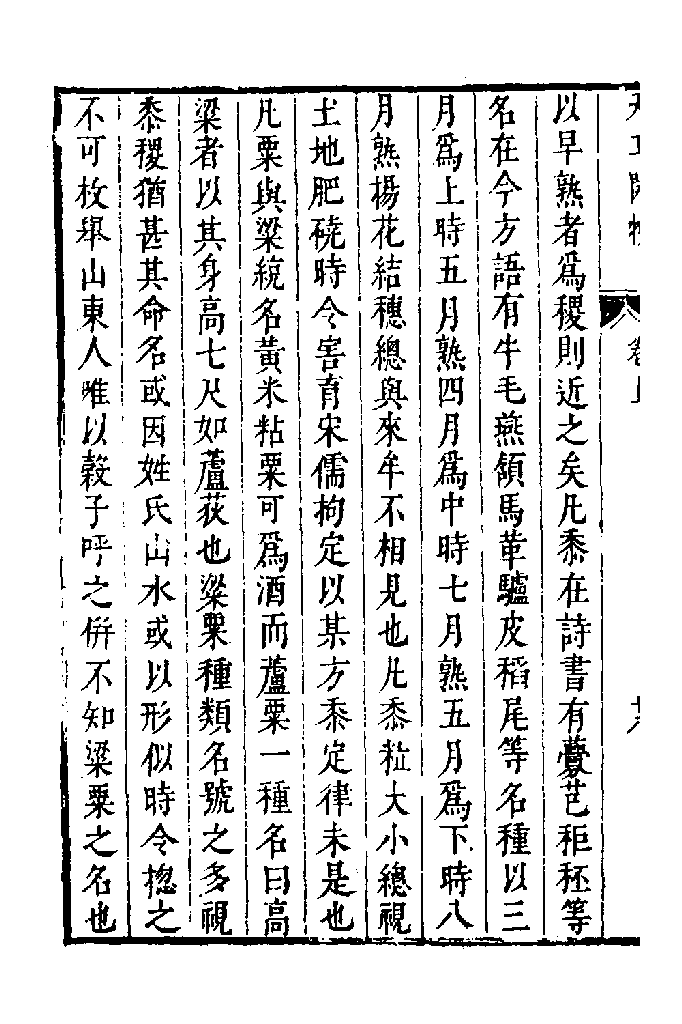 卷上
以早熟者爲稷則近之矣凡黍在詩書有虋芑秬秠等
名在今方語有牛毛燕頷馬革驢皮稻尾等名種以三
月爲上時五月熟四月爲中時七月熟五月爲下時八
月熟揚花結穗總與來牟不相見也凡黍粒大小總視
土地肥磽時令害育宋儒拘定以某方黍定律未是也
凡粟與粱統名黃米粘粟可爲酒而蘆粟一種名曰高
粱者以其身高七尺如蘆荻也粱粟種類名號之多視
黍稷猶甚其命名或因姓氏山水或以形似時令揔之
不可枚舉山東人唯以穀子呼之併不知粱粟之名也